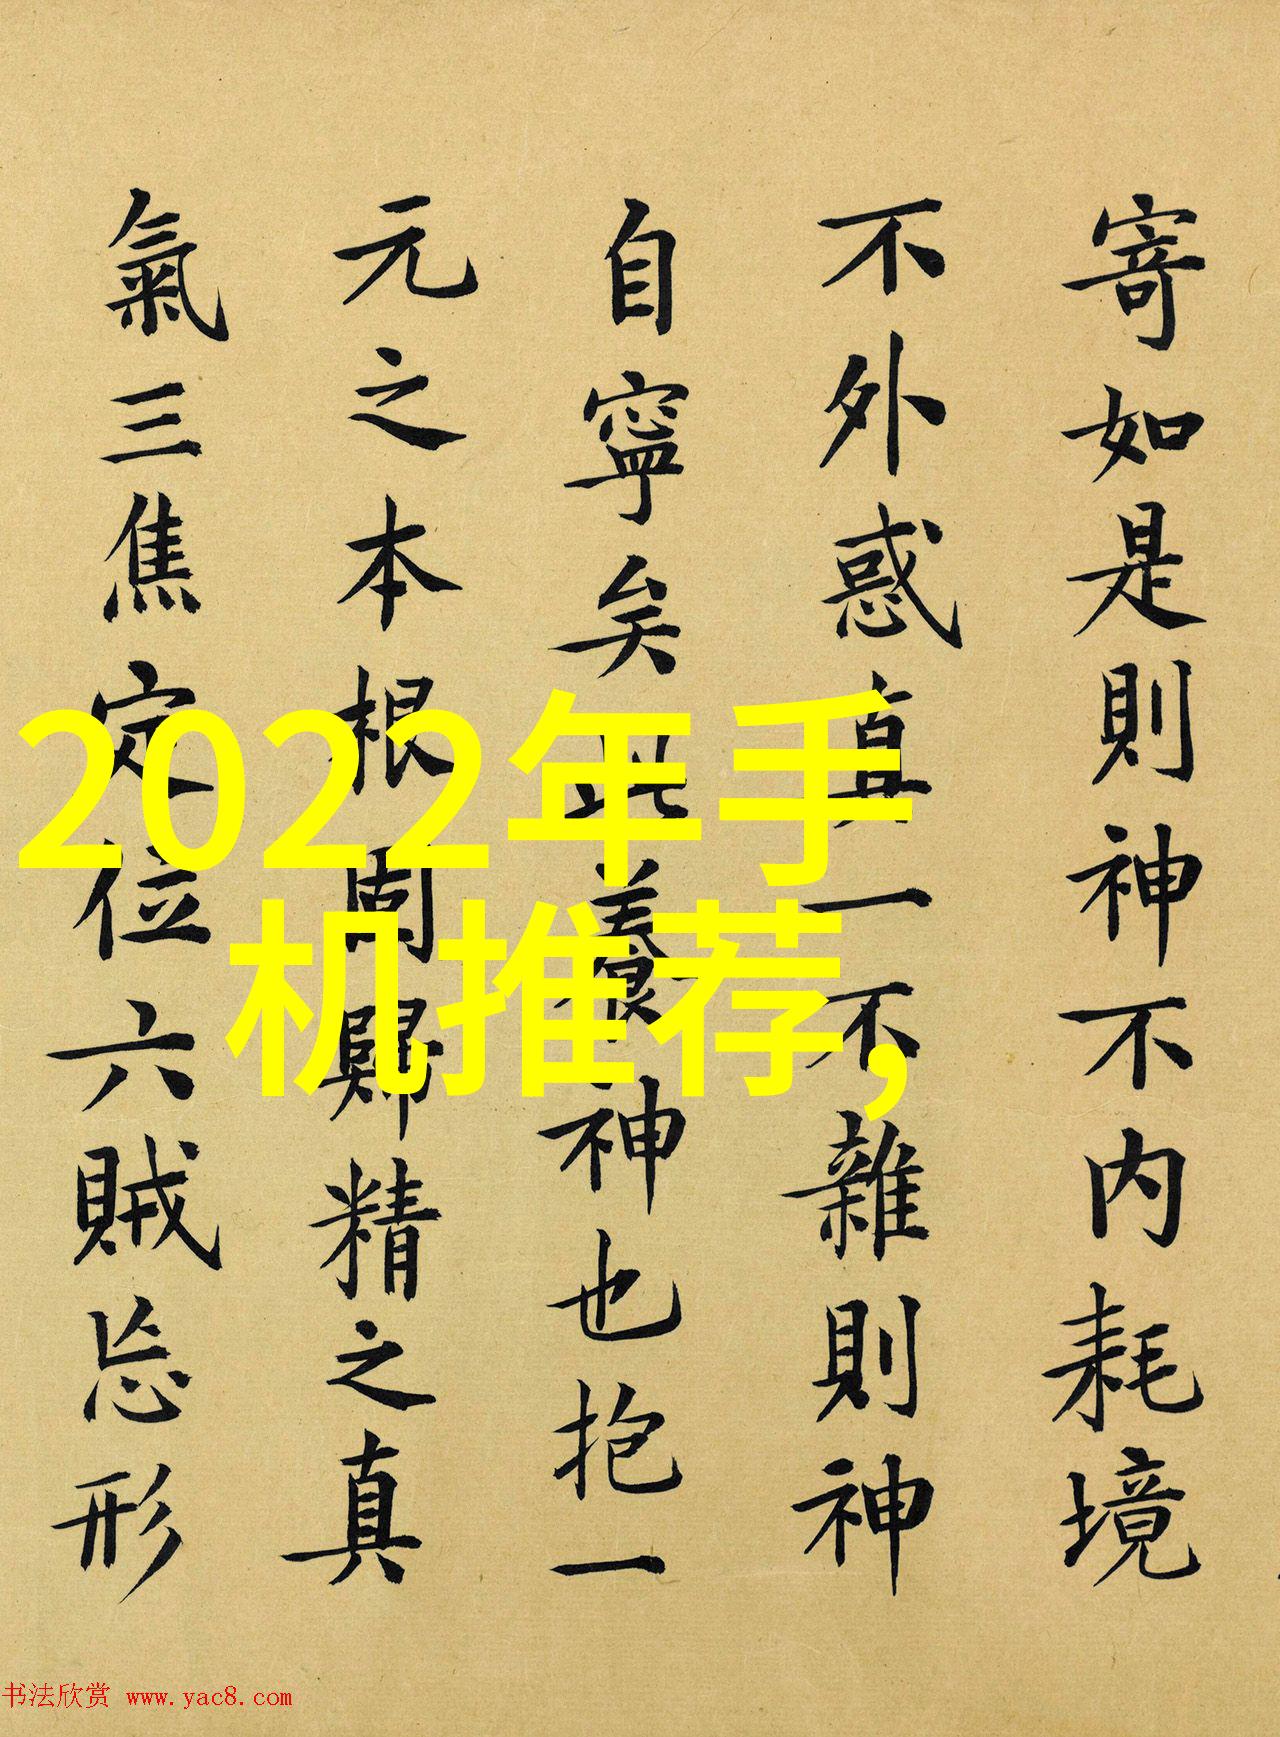 寄如是則神不内耗境
不外惑真一不雜則神
自寧矣此養神也抱一
元之本根固歸精之真
氣三焦定位六賊忘形
2022年手
机推荐,
书法欣赏 www.yac8.com